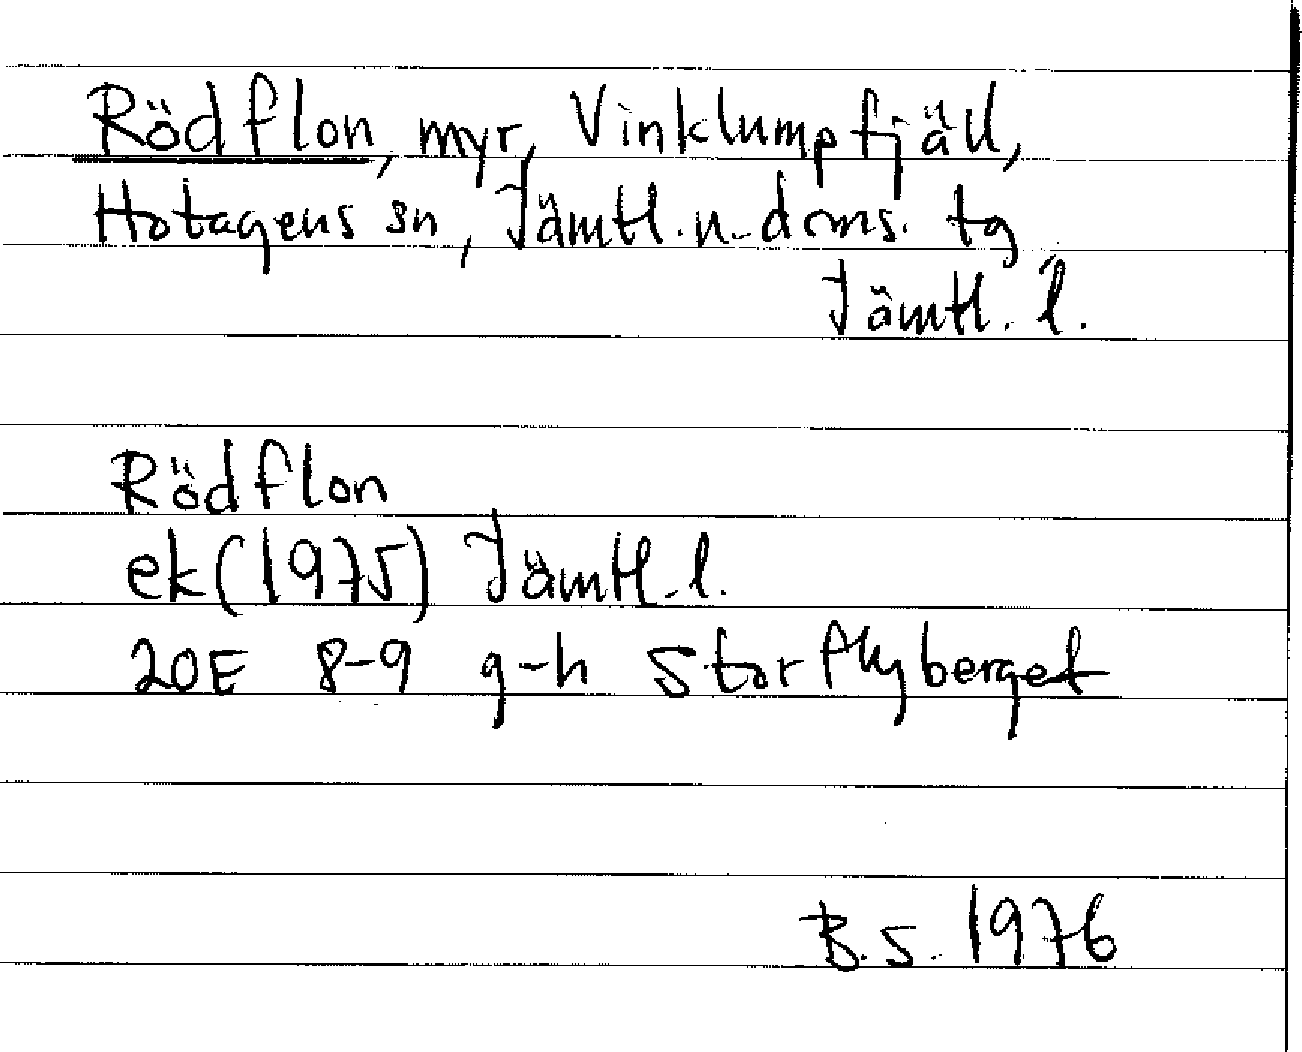 Rödflon, myr, Vinklumpfjäll,
Hotagens sn, Jämtl. n. doms. tg
Jämtl. l.
Rödflon
ek (1975) Jämtl. l.
20E 8-9 g-h Storflyberget
B.S. 1976